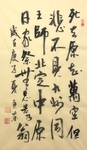 死去原知萬事空但
悲不見九州同
王師北定中原
日家祭無忘告乃翁